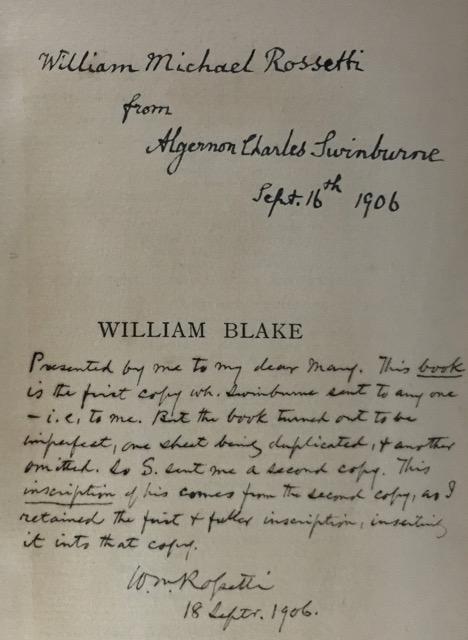 William Michael Rossetti
from
Algernon Charles Swinburne
Sept. 16th 1906
WILLIAM BLAKE
Presented by me to my dear Mary. This book
is the first copy wh. Swinburne sent to any one
– i.e, to me. But the book turned out to be
imperfect, one sheet being duplicated, & another
omitted. So S. sent me a second copy. This
inscription of his comes from the second copy, as I
retained the first & fuller inscription, inserting
it into that copy.
Wm Rossetti
18 Septr. 1906.